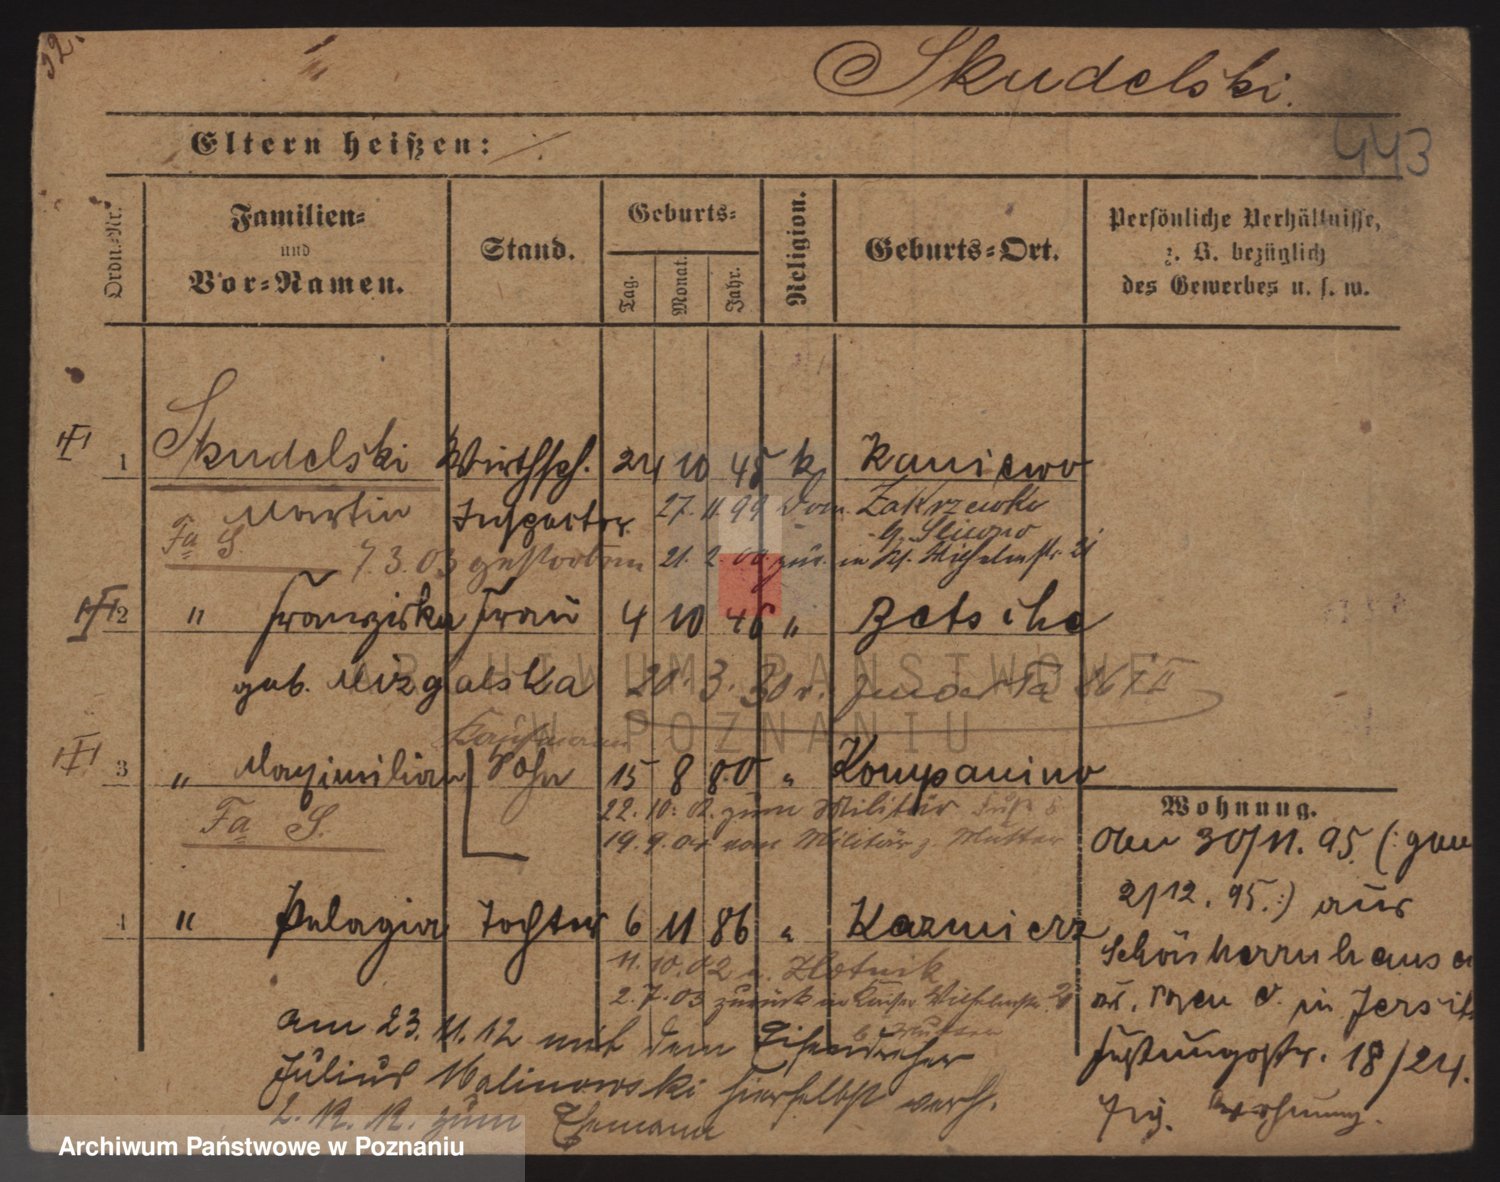 32.
Skudelski.
443
Eltern heißen:
Ordn.-Nr.
Familien-
und
Vor-Namen.
Stand.
Geburts-
Tag.
Monat.
Jahr.
Religion.
Geburts-Ort.
Persönliche Verhältnisse,
z. B. bezüglich
des Gewerbes u. s. w.
1 Skudelski Wirthsch. 24 10 45 k Kaniewo
Martin Inspector 27. 11. 99 Dom. Zakrzewko
Fa S.
7. 3. 03 gestorben 21. 2. 00 zur. in
2 " Franziska Frau 4 10 46 " Betsche
geb. Mizgalska 20. 3.
ARCHIWUM PAŃSTWOWE
W POZNANIU
Kaufmann
3 " Maximilian Sohn 15 8 80 " Kompanino
Fa S.
22. 10. 02. zum Militär
19. 9. 04 vom Militär z. Mutter
4 " Pelagia Tochter 6 11 86 " Kazmierz
11. 10. 02 n. Zlotnik
2. 7. 03 zurück in Kaiser Wilhelmstr.
am 23. 11. 12 mit dem Eisendreher
Julius Malinowski hierselbst verh.
2. 12. 12. zum Ehemann
Wohnung.
Am 30/11. 95. (: gem
2/12. 95. :) aus
Schönherrnhausen
Kr. Posen O. in Jersitz
18/24.
Wohnung.
Archiwum Państwowe w Poznaniu